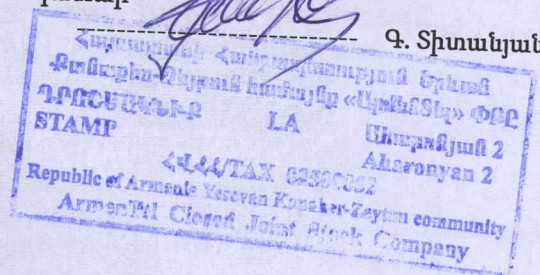 Գ. Տիտանյան
Հայաստանի Հանրապետություն Երևան
Քանաքեռ-Զեյթուն համայնք «ԱրմենՏել» ՓԲԸ
ԴՐՈՇՄԱԿՆԻՔ
STAMP LA Ահարոնյան 2
Aharonyan 2
ՀՎՀՀ/TAX
Republic of Armenia Yerevan Kanaker-Zeytun community
ArmenTel Closed Joint Stock Company